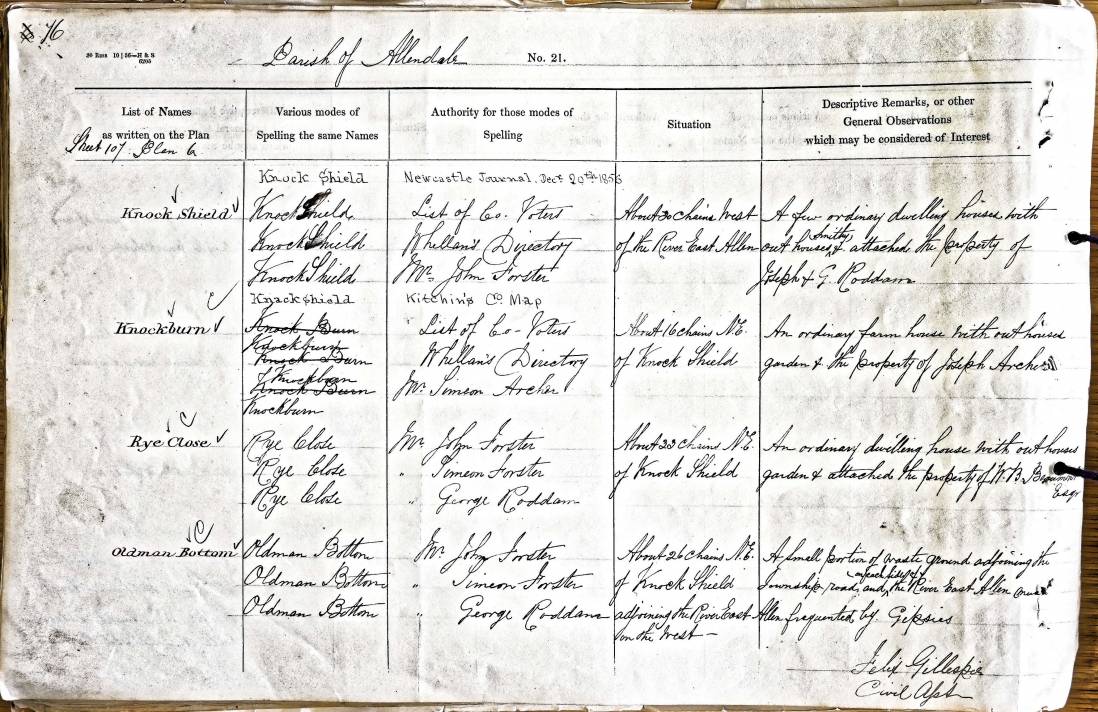 76
20 Rms 10 | 56—H & S
6205
Parish of Allendale
No. 21.
List of Names
as written on the Plan
Sheet 107. Plan 6
Various modes of
Spelling the same Names
Authority for those modes of
Spelling
Situation
Descriptive Remarks, or other
General Observations
which may be considered of Interest
Knock Shield Newcastle Journal. Dec 20th 1856
Knock Shield Knock Shield List of Co. Voters About 30 chains West A few ordinary dwelling houses with
Knock Shield Whellan's Directory of the River East Allen out houses smithy & attached the property of
Knock Shield Mr. John Forster Joseph & G. Roddam
Knackshield Kitchin's Co. Map
Knockburn Knock Burn List of Co. Voters About 16 chains N.E. An ordinary farm house with out houses
Knockburn
Knock Burn Whellan's Directory of Knock Shield garden & the property of Joseph Archer
Knockburn
Knock Burn Mr. Simeon Archer
Knockburn
Rye Close Rye Close Mr. John Forster About 22 chains N.E. An ordinary dwelling house with out houses
Rye Close " Simeon Forster of Knock Shield garden & attached the property of W. B. Beaumont
Esqr
Rye Close " George Roddam
Oldman Bottom Oldman Bottom Mr. John Forster About 26 chains N.E. A small portion of waste ground adjoining the
Oldman Bottom " Simeon Forster of Knock Shield Township road, and on each side of the River East Allen
Oldman Bottom " George Roddam adjoining the River East Allen frequented by Gipsies
on the West
Felix Gillespie
Civil Asst